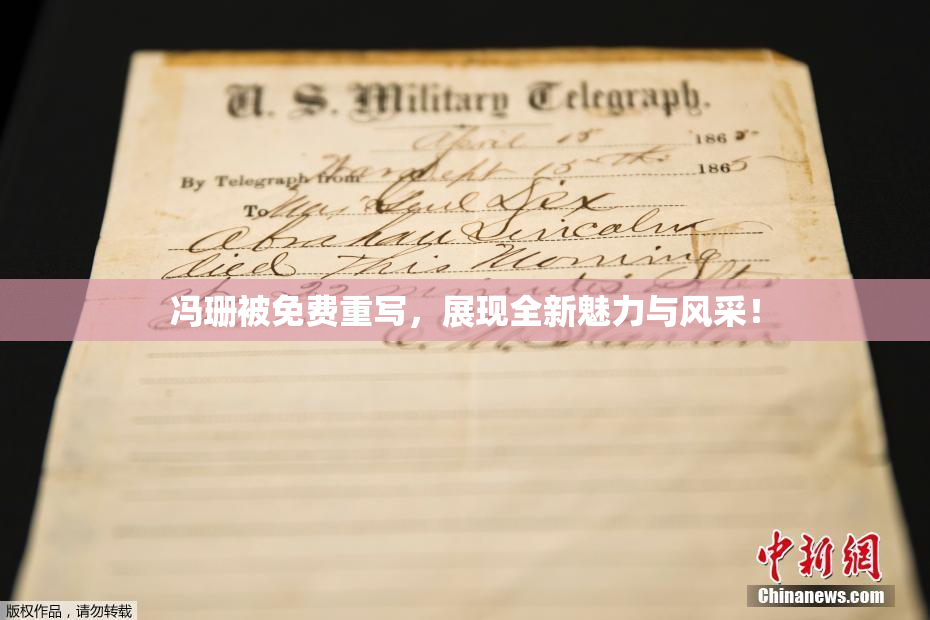 U. S. Military Telegraph.
April 15 1865
By Telegraph from War Dept 15th 1865
To Maj Genl Dix
Abraham Lincoln
died This Morning
冯珊被免费重写，展现全新魅力与风采！
22 minutes after
中新网
Chinanews.com
版权作品，请勿转载